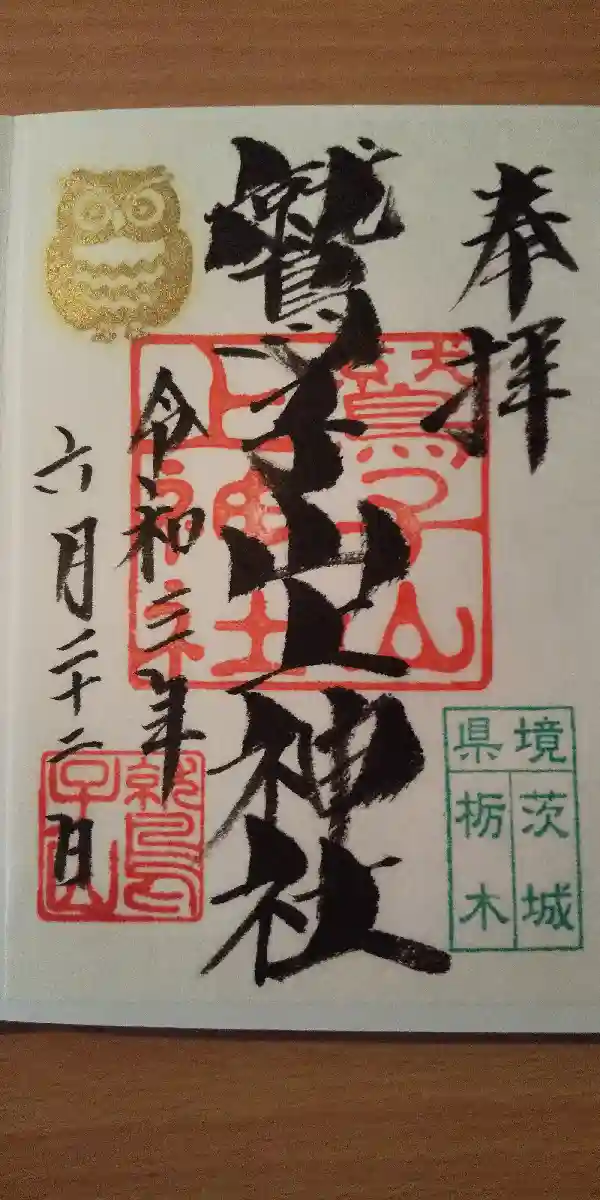 奉拝
鷲子山上神社
鷲子山
上神社
令和三年
六月二十二日
鷲
子山
県境
茨城
栃木